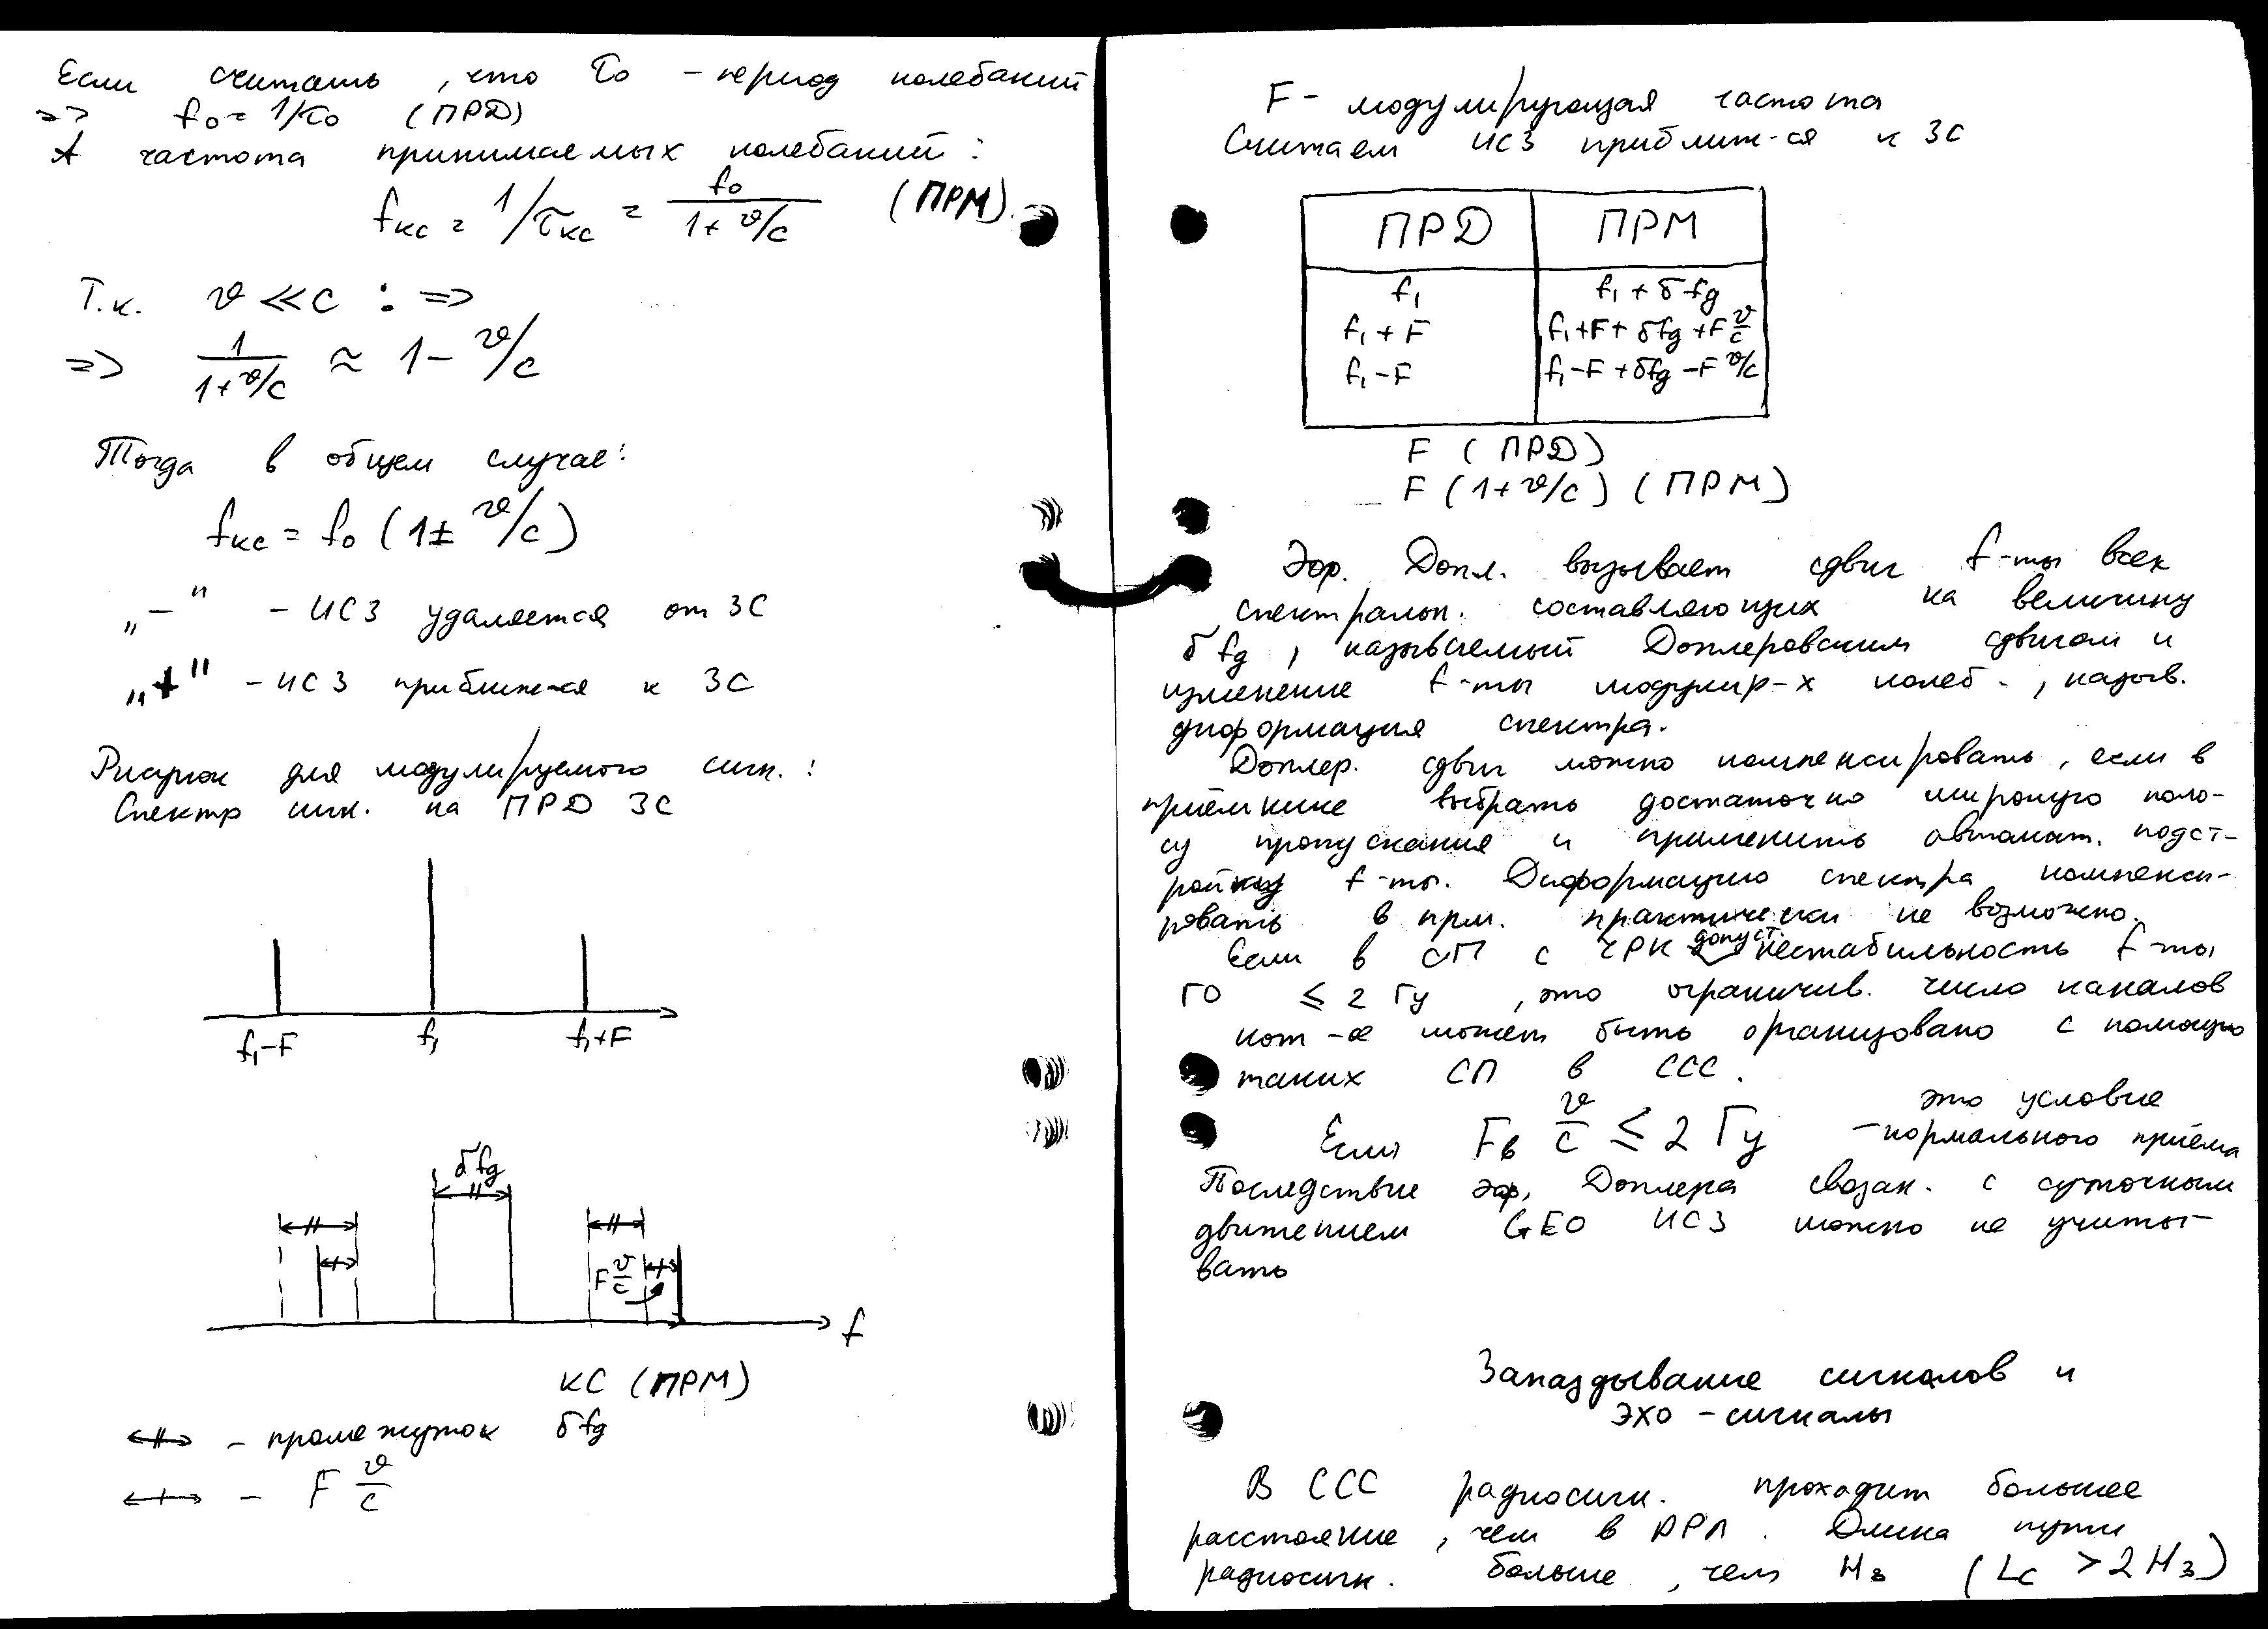 Если считать, что τ₀ - период колебаний
=> f₀ = 1/τ₀ (ПРД)
А частота принимаемых колебаний:
fкс = 1/τкс = f₀/(1+υ/c) (ПРМ).
Т.к. υ ≪ c : =>
=> 1/(1+υ/c) ≈ 1 - υ/c
Тогда в общем случае:
fкс = f₀ (1 ± υ/c)
„-" - ИСЗ удаляется от ЗС
„+" - ИСЗ приближ-ся к ЗС
Рисунок для модулируемого сигн.:
Спектр сигн. на ПРД ЗС
f₁-F f₁ f₁+F
δfg
F υ/c
f
КС (ПРМ)
<-//-> - промежуток δfg
<-/-> - F υ/c
F - модулирующая частота
Считаем ИСЗ приближ-ся к ЗС
ПРД ПРМ
f₁ f₁ + δfg
f₁ + F f₁+F+ δfg +F υ/c
f₁ - F f₁-F +δfg -F υ/c
F (ПРД)
F (1+υ/c) (ПРМ)
Эфф. Допл. вызывает сдвиг f-ты всех
спектральн. составляющих на величину
δfg, называемый Доплеровским сдвигом и
изменение f-ты модулир-х колеб-, назыв.
диформация спектра.
Доплер. сдвиг можно компенсировать, если в
приёмнике выбрать достаточно широкую поло-
су пропускания и применить автомат. подст-
ройку f-ты. Диформацию спектра компенси-
ровать в прм. практически не возможно.
Если в СП с ЧРК допуст. нестабильность f-ты
ГО ≤ 2 Гц, это ограничив. число каналов
кот-е может быть организовано с помощью
таких СП в ССС.
Если Fв υ/c ≤ 2 Гц - это условие
нормального приёма
Последствие эф. Доплера связан. с суточным
движением GEO ИСЗ можно не учиты-
вать
Запаздывание сигналов и
эхо - сигналы
В ССС радиосигн. проходит большее
расстояние, чем в РРЛ. Длина пути
радиосигн. больше, чем Hз (Lc > 2Hз)